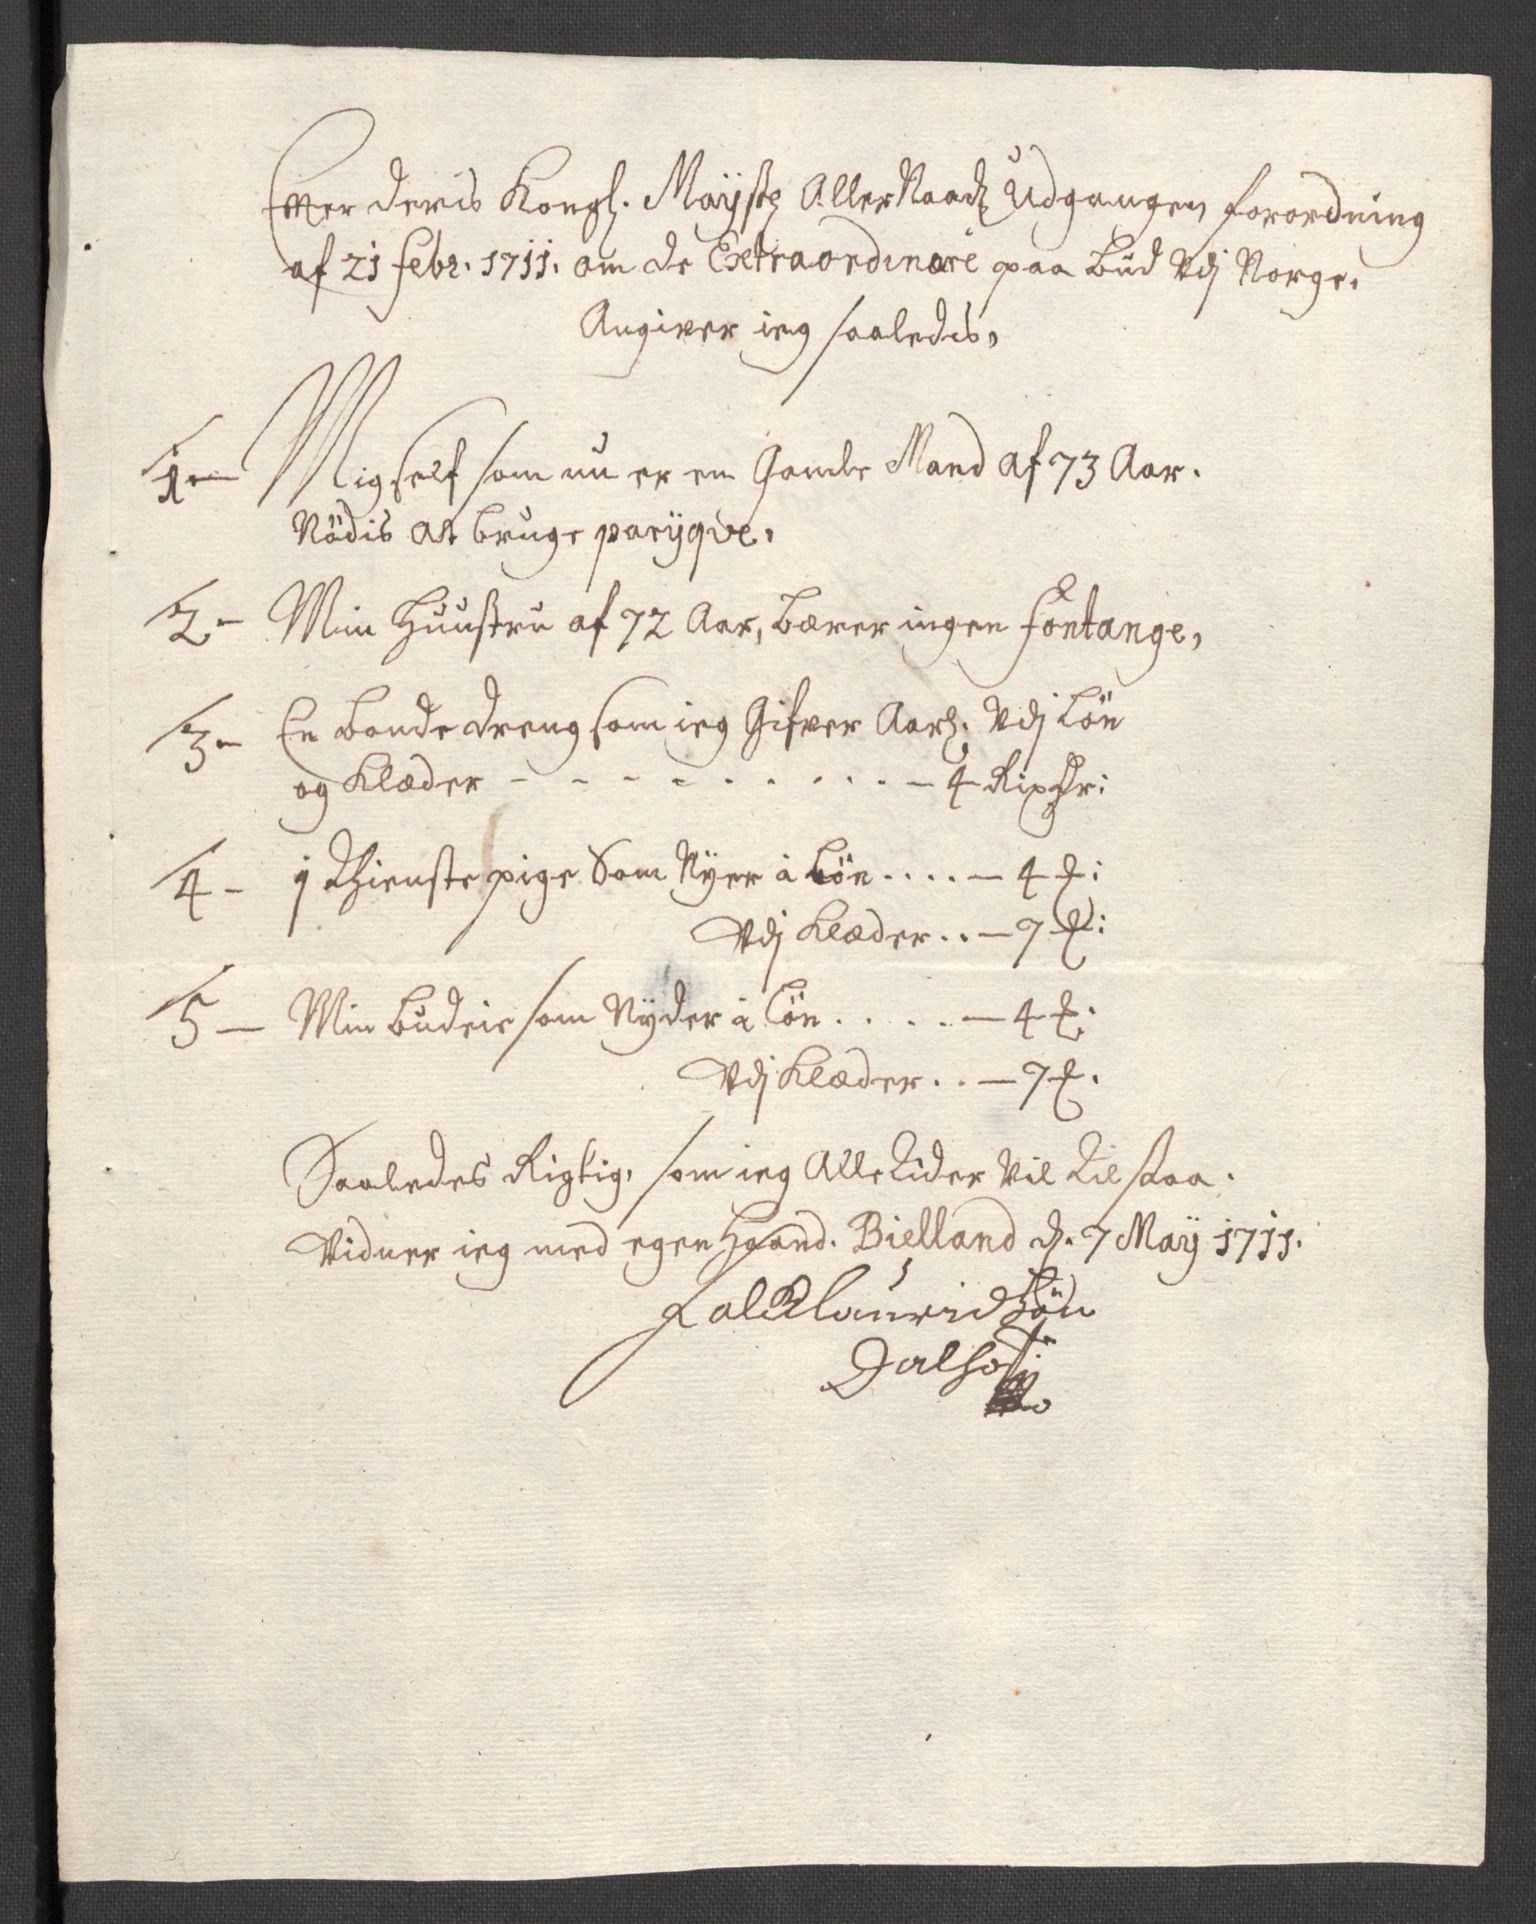 Efter deris Kongl. Mayst. Aller Naad. Udgangen forordning
af 21 febr. 1711. om de Extraordinaire paabud Vdj Norge.
Angiver ieg saaledis,
1- Mig self som nu er en Gamle Mand af 73 Aar.
Nödis at bruge parÿqve,
2- Min Huustru af 72 Aar, bærer ingen fontange,
3- En bonde dreng som ieg Gifver Aarl. Vdj Lön
og Klæder - - - - - - - - - - 4 Rixdr:
4- 1 Thieniste pige Som Nyer i Lön . . . . - 4 d:
Vdj Klæder . . - 7 d:
5- Min budeie som Nyder i Lön . . . . . - 4 d.
Vdj Klæder . . - 7 d.
Saaledes Rigtig, som ieg Alletider Vil tilstaa.
Vidner ieg med egen Haand. Bielland d. 7 Maÿ 1711.
Falck Lauridsön
Dalhof